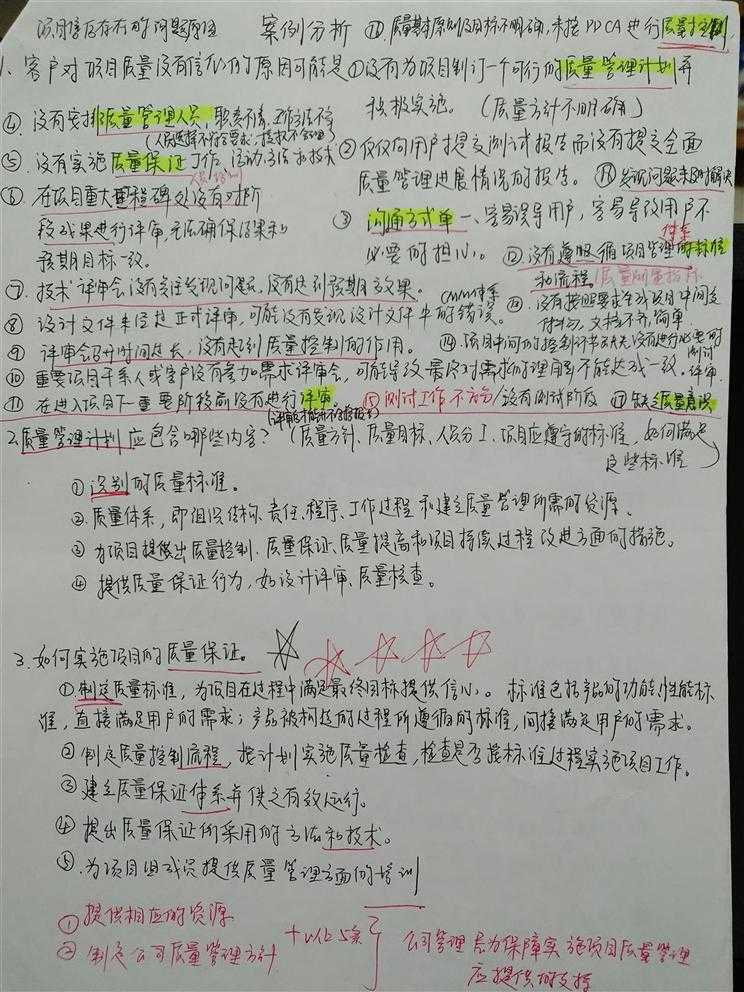 项目信质存在的问题原因 案例分析 ⑱.质量基本原则及目标不明确,未按PDCA进行质量控制
1. 客户对项目质量没有信心的原因可能是①没有为项目制订一个可行的质量管理计划并
积极实施。(质量方针不明确)
④.没有安排质量管理人员,职责不清,工作方法不当
(人员选择不符合要求,授权不合理)
②仅仅向用户提交测试报告而没有提交全面
⑤.没有实施质量保证工作、活动、方法和技术
质量管理进展情况的报告。⑯发现问题未及时解决
⑥.在项目重大里程碑处没有对阶
段成果进行评审,无法确保结果和
预期目标一致。
③沟通方式单一、容易误导用户,容易导致用户不
必要的担心。⑫没有遵照循项目管理的标准
体系
和流程。
⑦.技术评审会没有关注发现问题,没有达到预期的效果。
⑬.没有按照需求生成项目中间交
付物,文档不齐,简单
⑧设计文件未经过正式评审,可能没有发现设计文件中的错误。
⑨.评审会召开时间过长,没有起到质量控制的作用。
⑭.项目中间的控制环节缺失没有进行必要的测试、评审
⑩重要项目干系人或客户没有参加需求评审会,可能导致最终对需求的理解不能达成一致。
⑪在进入项目下一重要阶段前没有进行评审。⑮测试工作不充分/没有测试阶段 ⑰缺乏质量意识
2.质量管理计划应包含哪些内容?(质量方针、质量目标、人员分工、项目应遵守的标准,如何满足
这些标准)
①识别的质量标准。
②.质量体系,即组织结构、责任、程序、工作过程和建立质量管理所需的资源、
③为项目提供出质量控制、质量保证、质量提高和项目持续过程改进方面的措施。
④提供质量保证行为,如设计评审、质量核查。
3.如何实施项目的质量保证。
①制定质量标准,为项目在过程中满足最终目标提供信心。标准包括产品的功能、性能标
准,直接满足用户的需求;产品被构造的过程所遵循的标准,间接满足用户的需求。
②制定质量控制流程,按计划实施质量检查,检查是否按标准过程实施项目工作。
③建立质量保证体系并使之有效运行。
④提出质量保证所采用的方法和技术。
⑤.为项目组成员提供质量管理方面的培训
①提供相应的资源
②制定公司质量管理方针
+以上5条
公司管理者为保障实施项目质量管理
应提供的支持